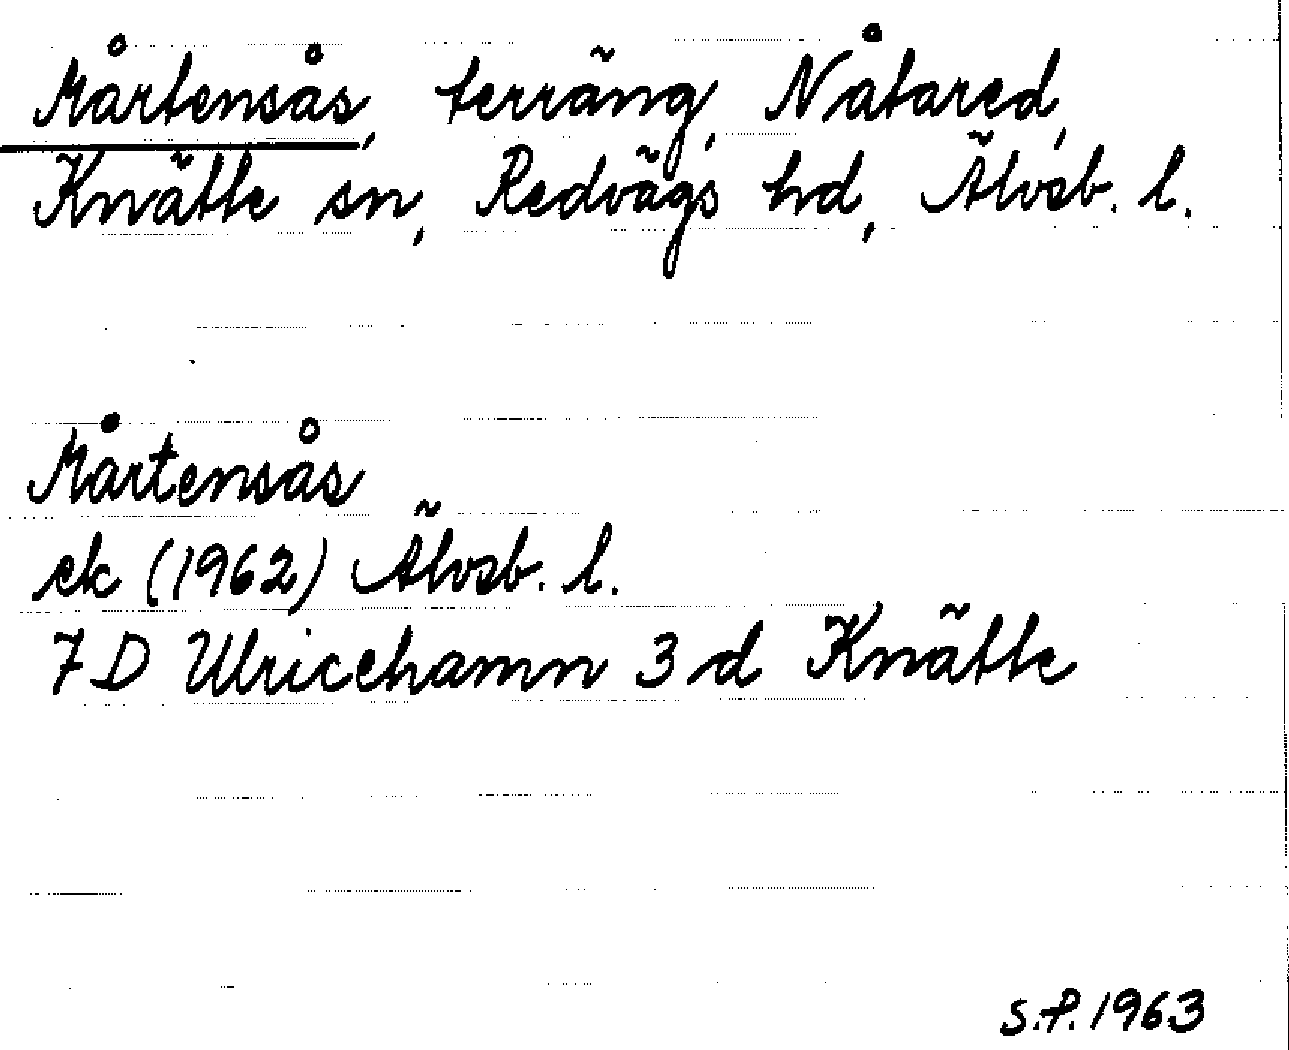 Mårtensås, terräng, Nåtared,
Knätte sn, Redvägs hd, Älvsb. l.
Mårtensås
ek (1962) Älvsb. l.
7 D Ulricehamn 3 d Knätte
S.P. 1963